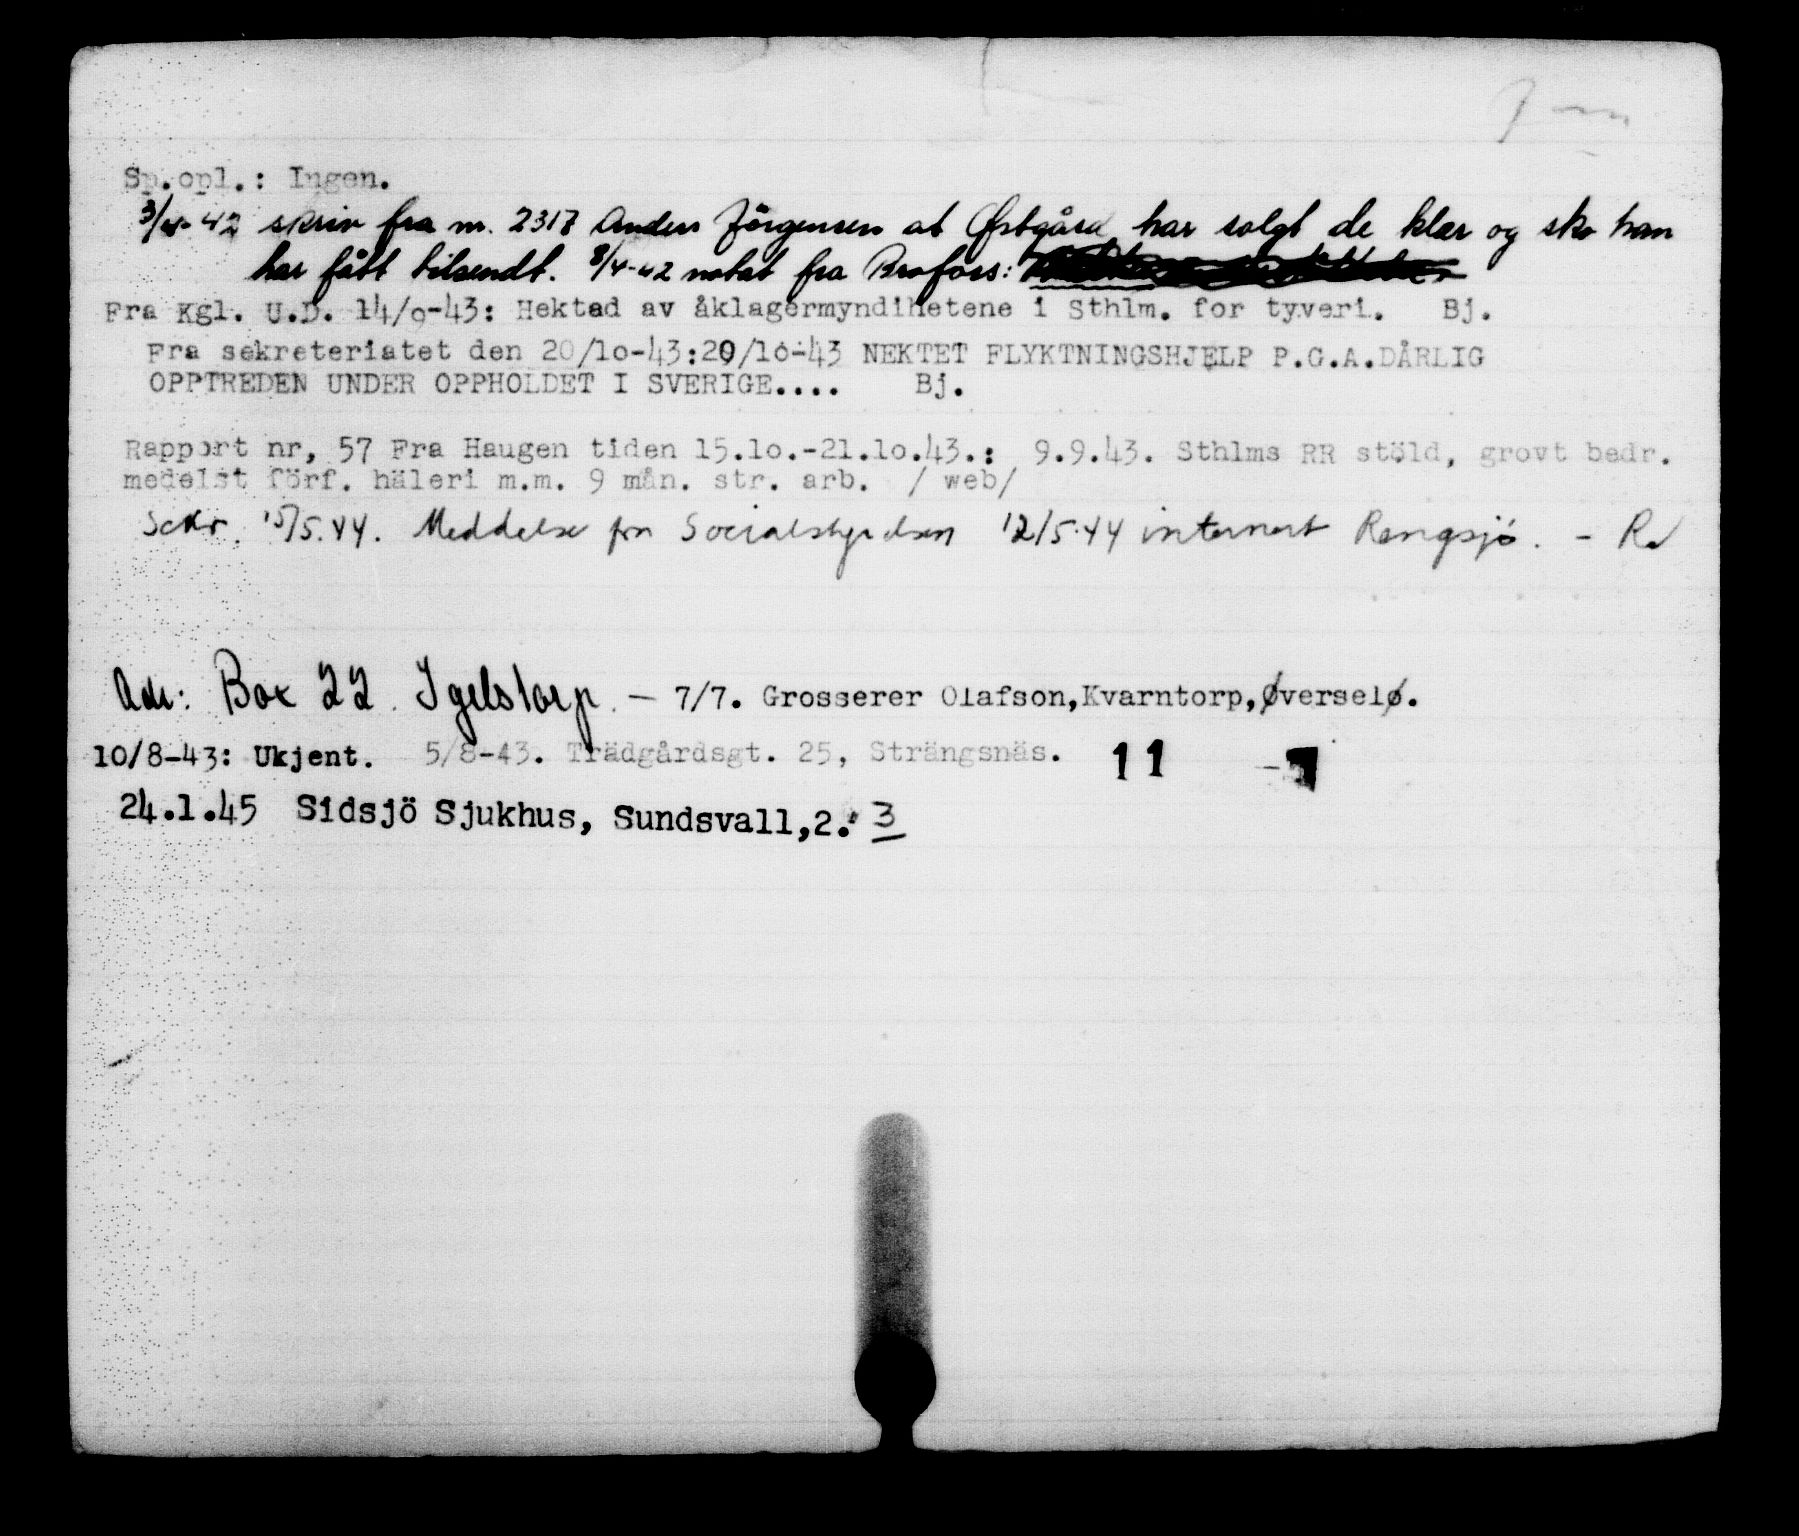 Sp.opl.: Ingen.
3/4-42 skriv fra nr. 2317 Anders Jörgensen at Østgård har solgt de klær og sko han
har fått tilsendt. 8/4-42 notat fra Brofoss:
Fra Kgl. U.D. 14/9-43: Hektad av åklagermyndihetene i Sthlm. for tyveri. Bj.
Fra sekreteriatet den 20/10-43:20/10-43 NEKTET FLYKTNINGSHJELP P.G.A.DÅRLIG
OPPTREDEN UNDER OPPHOLDET I SVERIGE.... Bj.
Rapport nr, 57 Fra Haugen tiden 15.10.-21.10.43.: 9.9.43. Sthlms RR stöld, grovt bedr.
medelst förf. häleri m.m. 9 mån. str. arb. / web/
Sekr. 15/5.44. Meddelse fra Socialstyrelsen 12/5.44 internert Rengsjö. -
Adr: Box 22. Igelstorp. — 7/7. Grosserer Olafson,Kvarntorp,Øverselø.
10/8-43: Ukjent. 5/8-43. Trädgårdsgt. 25, Strängsnäs. 11
24.1.45 Sidsjö Sjukhus, Sundsvall,2. 3